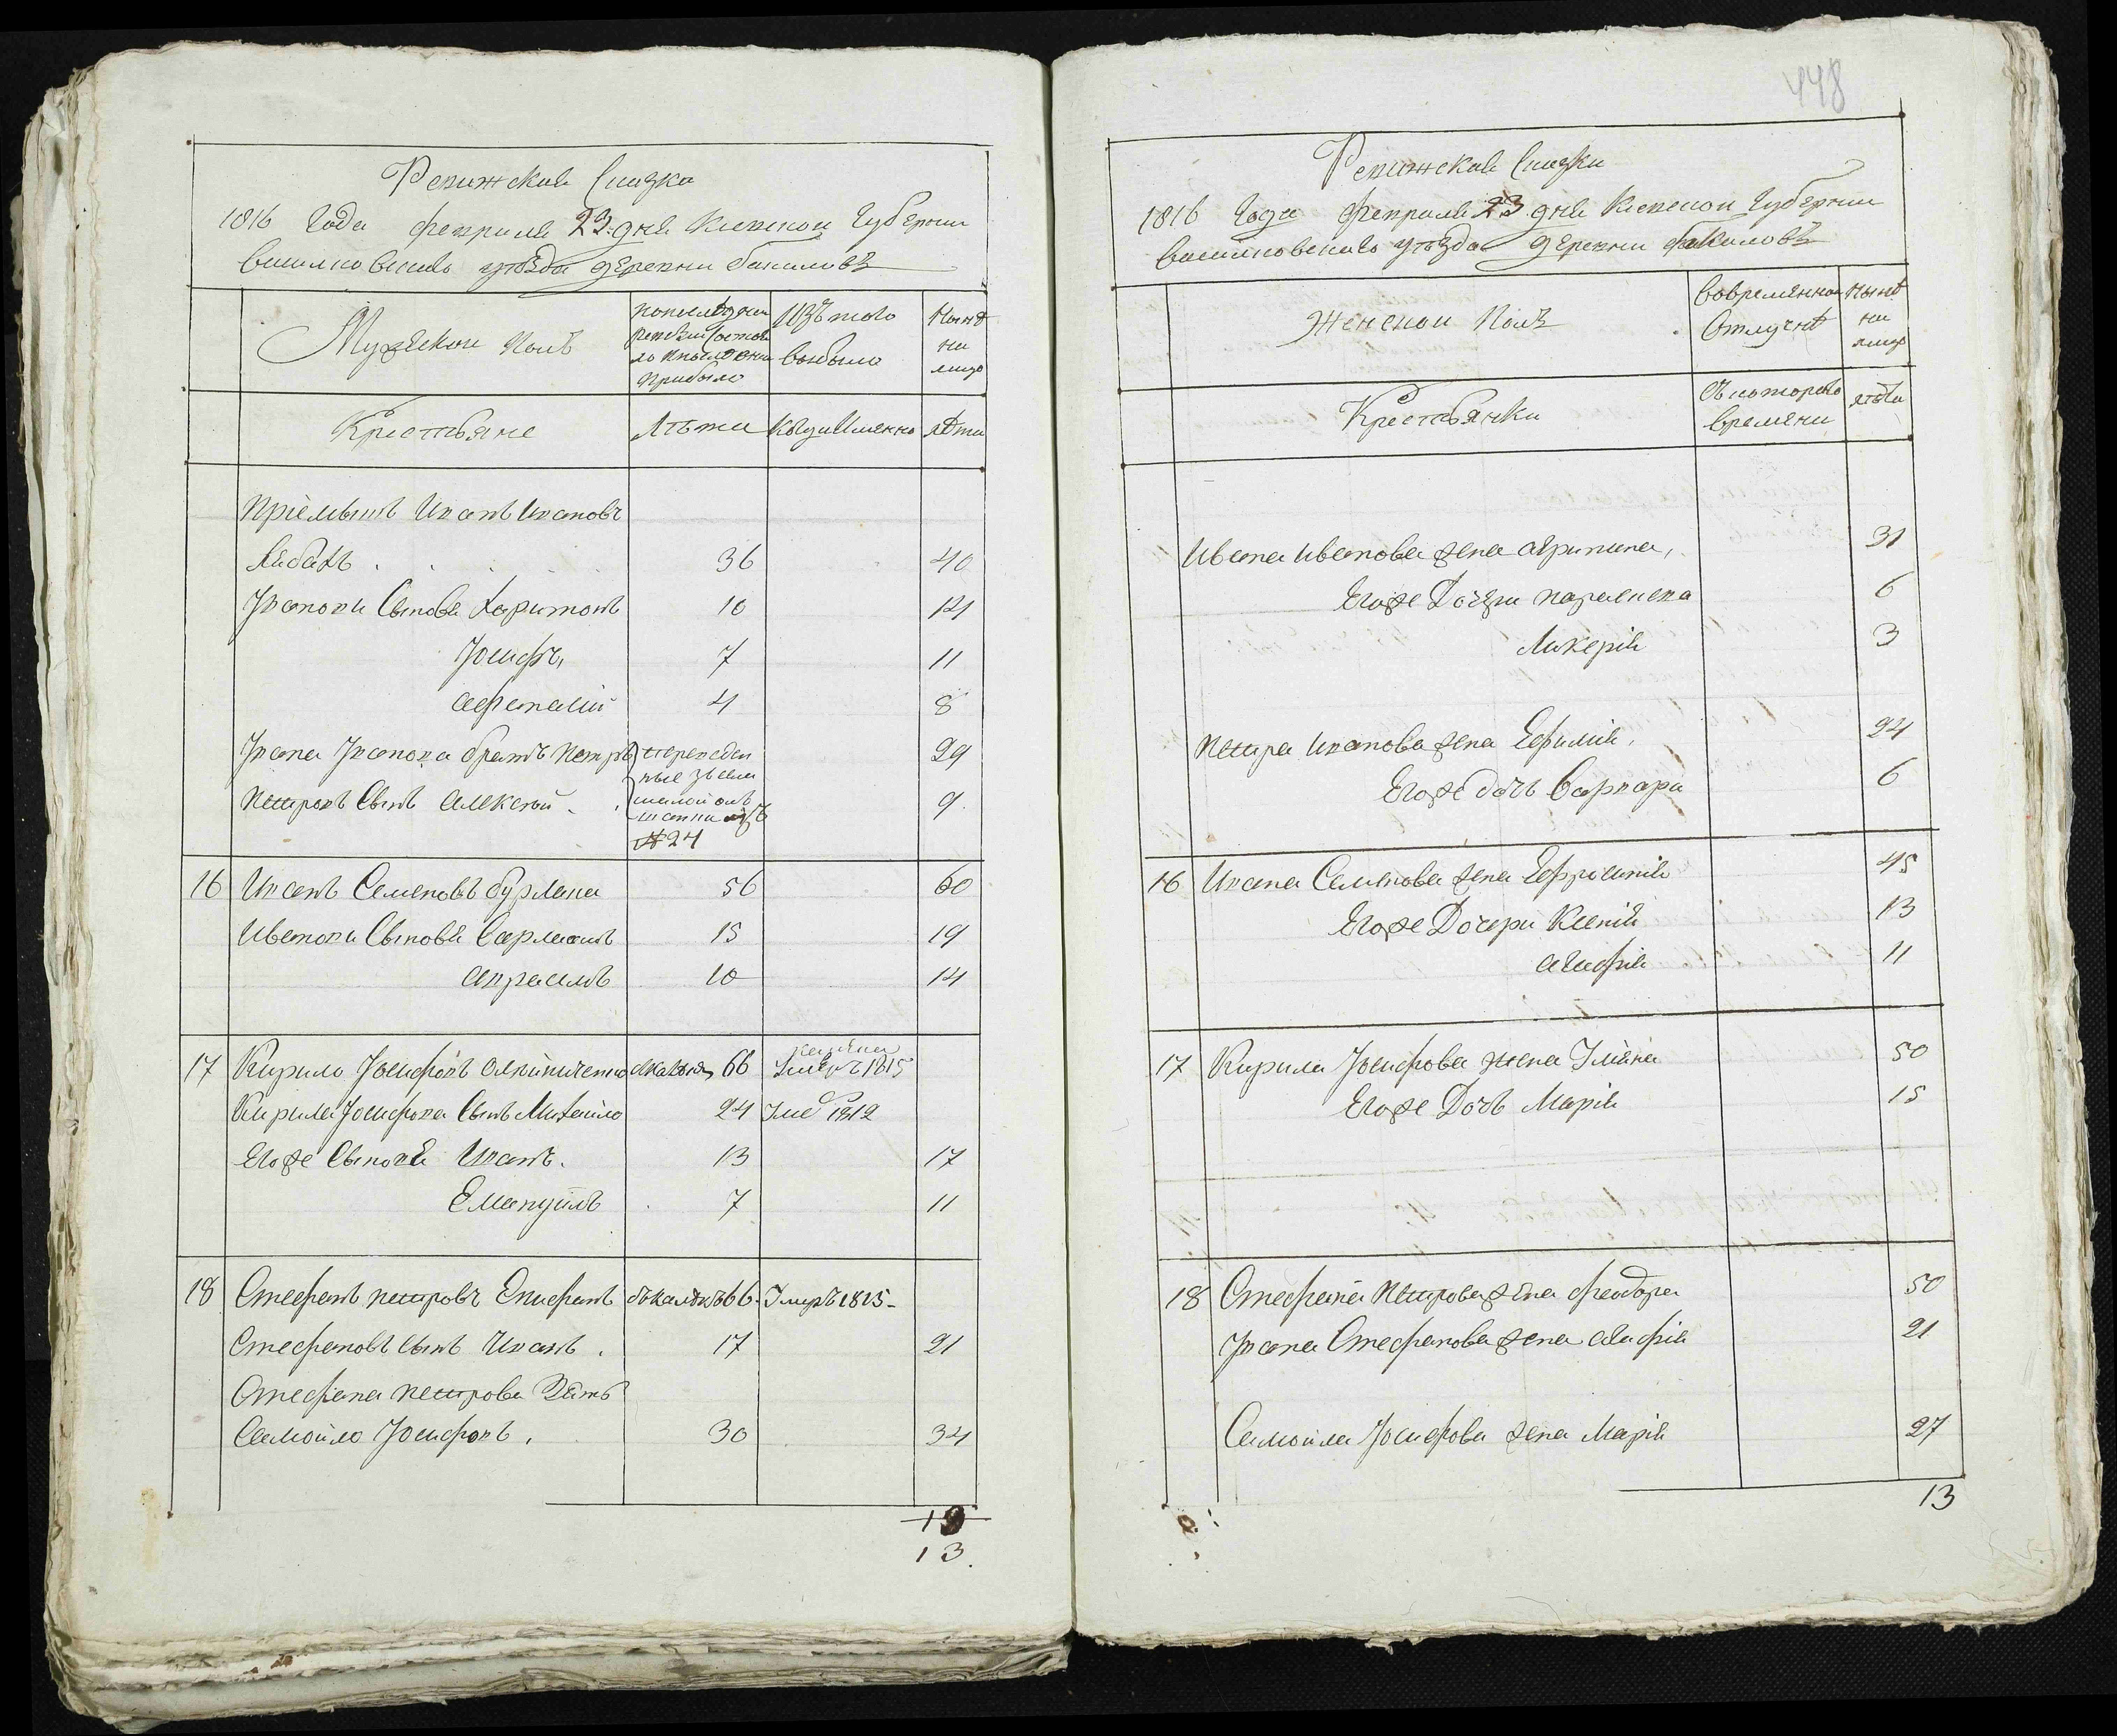 Ревижская Сказка
1816 Года февраля 23 дня Киевской Губернии
василковскаго уѣзда деревни бакаловъ
Мужескои полъ
Попоследней
Ревизии состоя
ло и после оной
прибыло
Изъ того
выбыло
Нынѣ
на
лицо
Крестьяне
Лѣта
Когда Именно
лѣта
Пріемышъ Иванъ Ивановъ
Лабахъ 36 40
Ивановы Сыновя Харитонъ 10 14
Іосифъ, 7 11
Афанасій 4 8
Ивана Иванова братъ Петръ 29
переведен
ные зъ села
малой
№ 24
Петровъ Сынъ Алексѣй 9
16 Иванъ Семеновъ бурлака 56 60
Ивановы Сыновя Вармалъ 15 19
Аврамъ 10 14
17 Кирило Іосифовъ 66 Умеръ 1815
Кирила Іосифова Сынъ Михайло 24 Уме 1812
Егоже Сыновя Иванъ. 13 17
Емануилъ 7 11
18 Стефанъ петровъ Епифанъ 66. Умеръ 1815
Стефановъ сынъ Иванъ. 17 21
Стефана петрова Зять
Самойло Іосифовъ. 30 34
19
13.
448
Ревижская Сказка
1816 Года февраля 23 дня Киевской Губернии
василковскаго уѣзда деревни бакаловъ
Женскои полъ
Вовремянной
Отлучкѣ
Нынѣ
на
лицо
Крестьянки
Съ которого
времяни
лѣта
Ивана Иванова жена агрипина, 31
Егоже Дочери параскева 6
Ликерія 3
Петра Иванова жена Ефимія, 24
Егоже дочь Варвара 6
16 Ивана Семенова жена Ефросинія 45
Егоже Дочери Ксенія 13
агафія 11
17 Кирила Іосифова жена Уляна 50
Егоже Дочь Марія 15
18 Стефана Петрова жена феодора 50
Ивана Стефанова жена агафія 21
Самойла Іосифова жена Марія 27
13